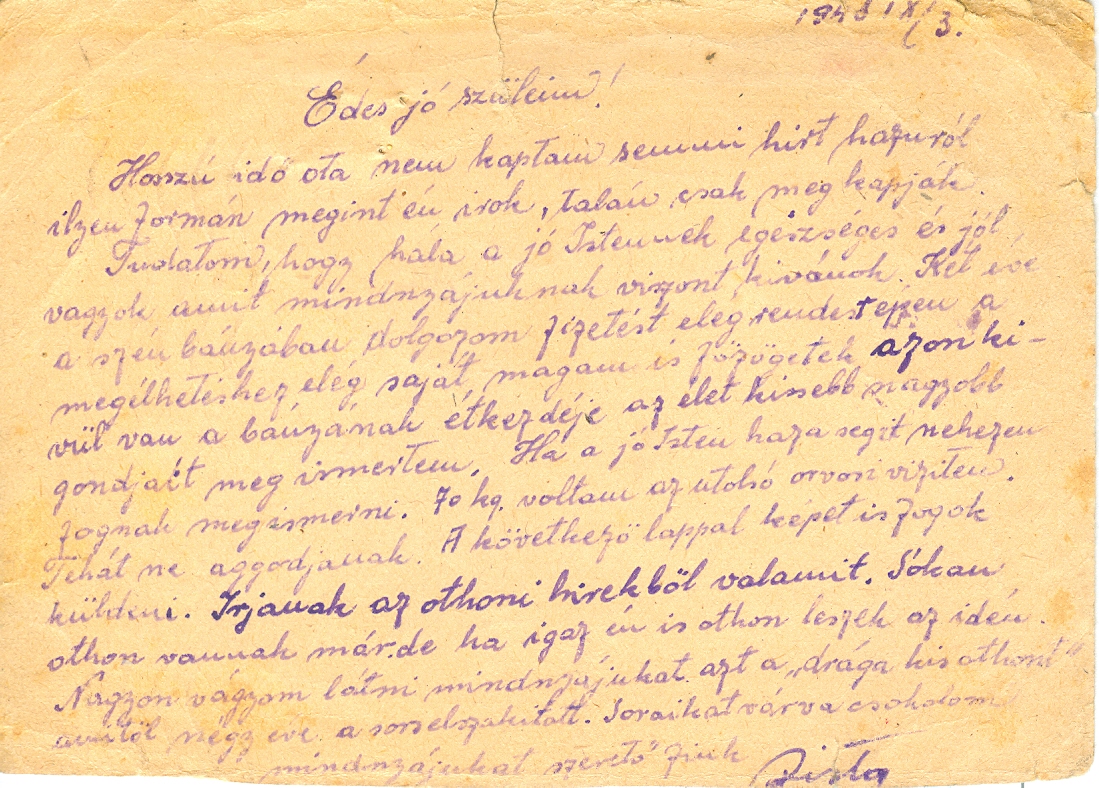 194 IX/3.
Édes jó szüleim!
Hosszú idő ota nem kaptam semmi hirt hazuról
ilyen formán megint én irok, talán csak meg kapják.
Tudatom, hogy hála a jó Istennek egészséges és jól
vagyok amit mindnyájuknak viszont kivánok. Két éve
a szén bányában dolgozom fizetést elég rendest a
megélhetéshez elég saját magam is főzögetek azonki-
vül van a bányának étkezdéje az élet kissebb nagyobb
gondjait meg ismertem. Ha a jó Isten haza segit nehezen
fognak megismerni. 70 kg. voltam az utolsó orvosi viziten.
Tehát ne aggodjanak. A következő lappal képet is fogok
küldeni. Irjanak az othoni hirekböl valamit. Sokan
othon vannak már.de ha igaz én is othon leszek az idén.
Nagyon vágyom látni mindnyájukat azt a „drága kis othont"
amitöl négy éve a sors elszakitott. Soraikat várva csokolom
mindnyájukat szerető fiuk
Pista